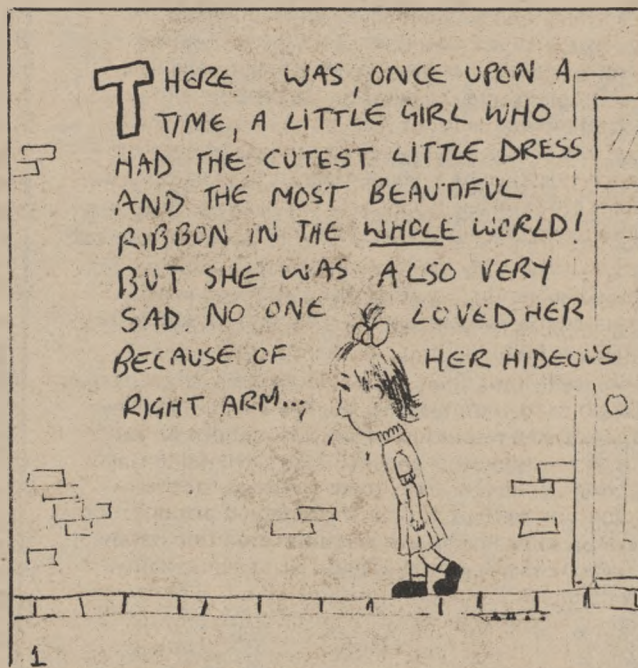 THERE WAS, ONCE UPON A
TIME, A LITTLE GIRL WHO
HAD THE CUTEST LITTLE DRESS
AND THE MOST BEAUTIFUL
RIBBON IN THE WHOLE WORLD!
BUT SHE WAS ALSO VERY
SAD. NO ONE LOVED HER
BECAUSE OF HER HIDEOUS
RIGHT ARM...
1